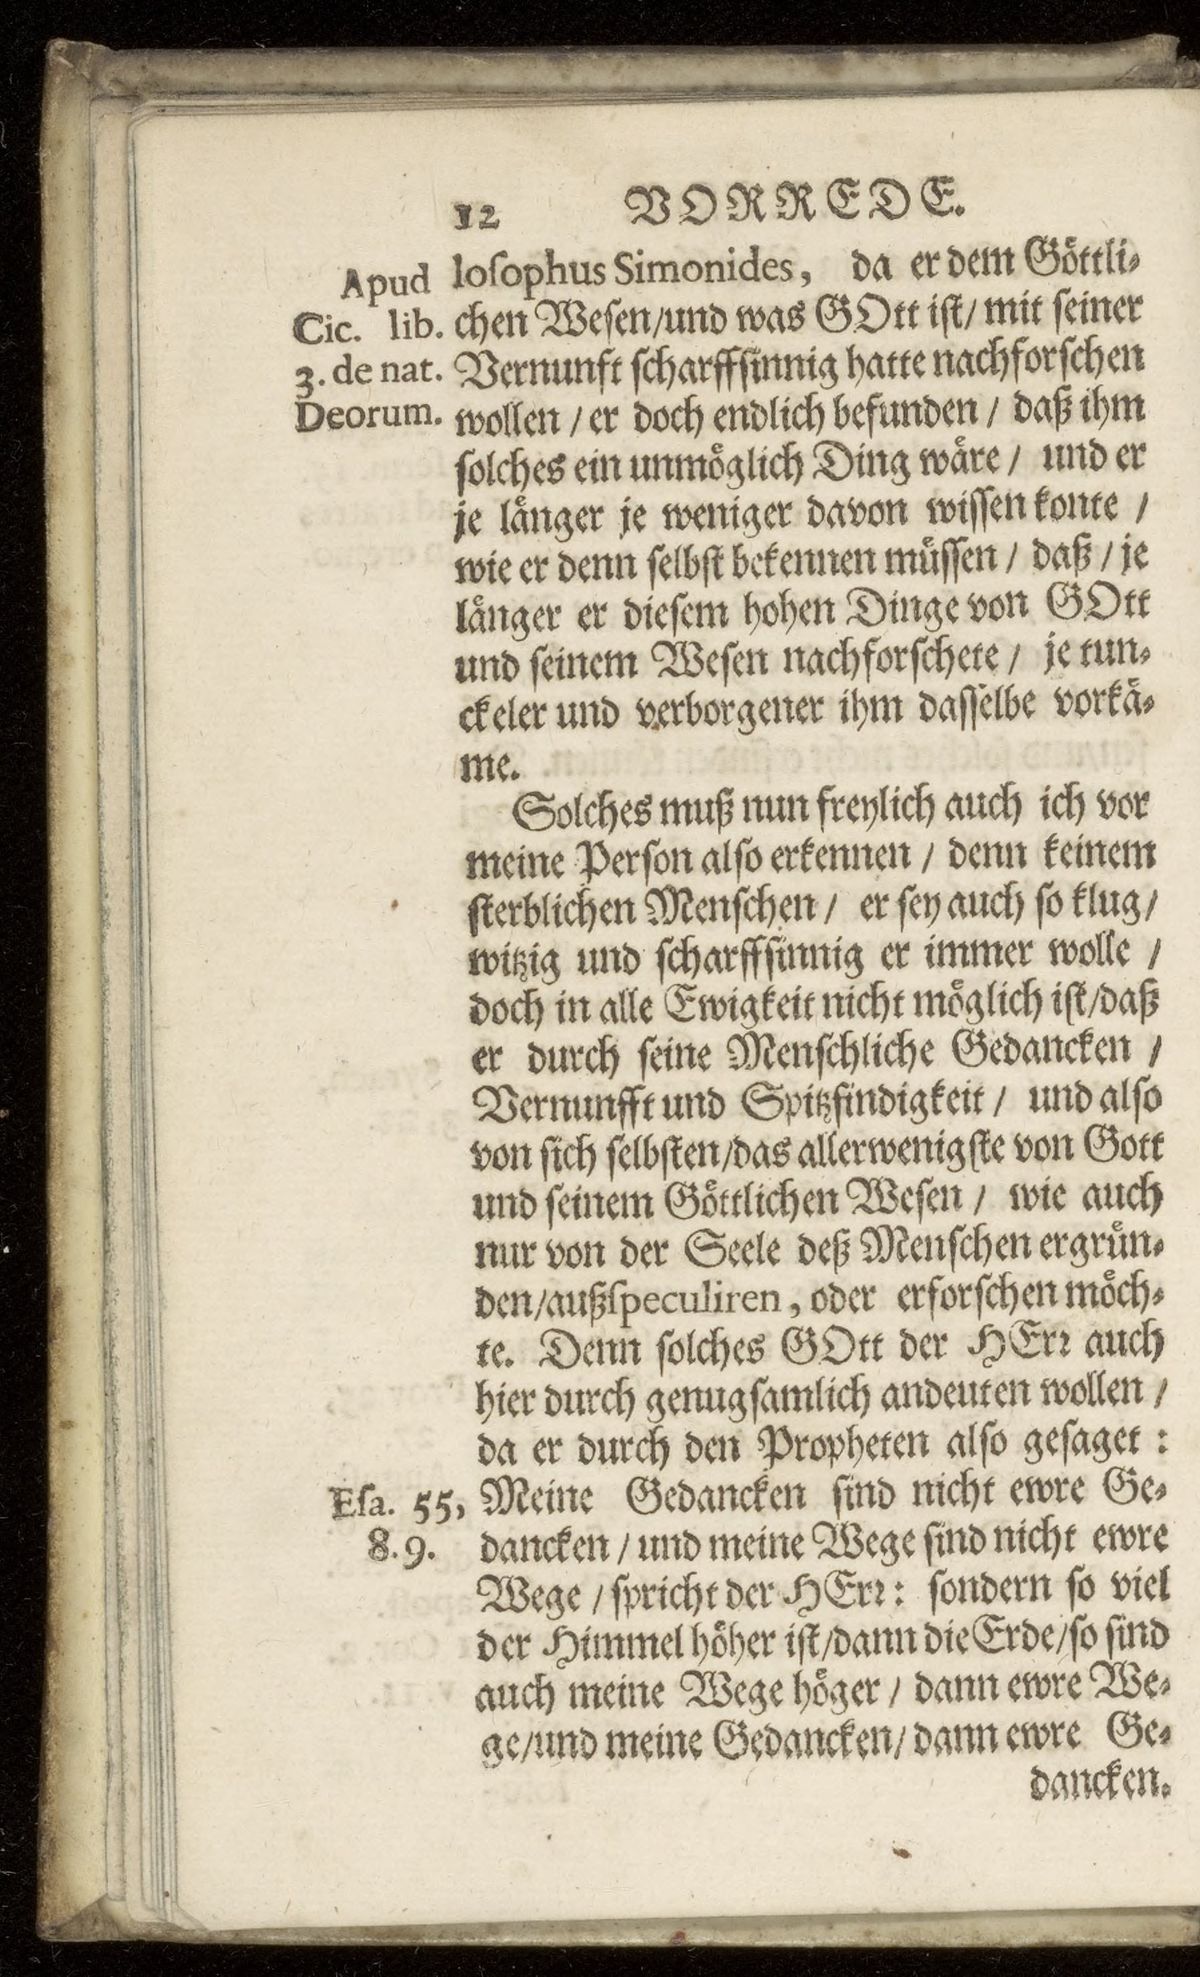 12 VORREDE.
Apud
Cic. lib.
3. de nat.
Deorum.
loſophus Simonides, da er dem Goͤttli⸗
chen Weſen/und was GOtt iſt/ mit ſeiner
Vernunft ſcharffſinnig hatte nachforſchen
wollen / er doch endlich befunden / daß ihm
ſolches ein unmoͤglich Ding waͤre / und er
je laͤnger je weniger davon wiſſen konte /
wie er denn ſelbſt bekennen muͤſſen / daß / je
laͤnger er dieſem hohen Dinge von GOtt
und ſeinem Weſen nachforſchete / je tun⸗
ckeler und verborgener ihm daſſelbe vorkaͤ⸗
me.
Solches muß nun freylich auch ich vor
meine Perſon alſo erkennen / denn keinem
ſterblichen Menſchen / er ſey auch ſo klug/
witzig und ſcharffſinnig er immer wolle /
doch in alle Ewigkeit nicht moͤglich iſt/daß
er durch ſeine Menſchliche Gedancken /
Vernunfft und Spitzfindigkeit / und alſo
von ſich ſelbſten/das allerwenigſte von Gott
und ſeinem Goͤttlichen Weſen / wie auch
nur von der Seele deß Menſchen ergruͤn⸗
den/außſpeculiren, oder erforſchen moͤch⸗
te. Denn ſolches GOtt der HErꝛ auch
hier durch genugſamlich andeuten wollen /
da er durch den Propheten alſo geſaget :
Eſa. 55,
8.9.
Meine Gedancken ſind nicht ewre Ge⸗
dancken / und meine Wege ſind nicht ewre
Wege / ſpricht der HErꝛ: ſondern ſo viel
der Himmel hoͤher iſt/dann die Erde/ſo ſind
auch meine Wege hoͤger / dann ewre We⸗
ge/und meine Gedancken/ dann ewre Ge⸗
dancken.